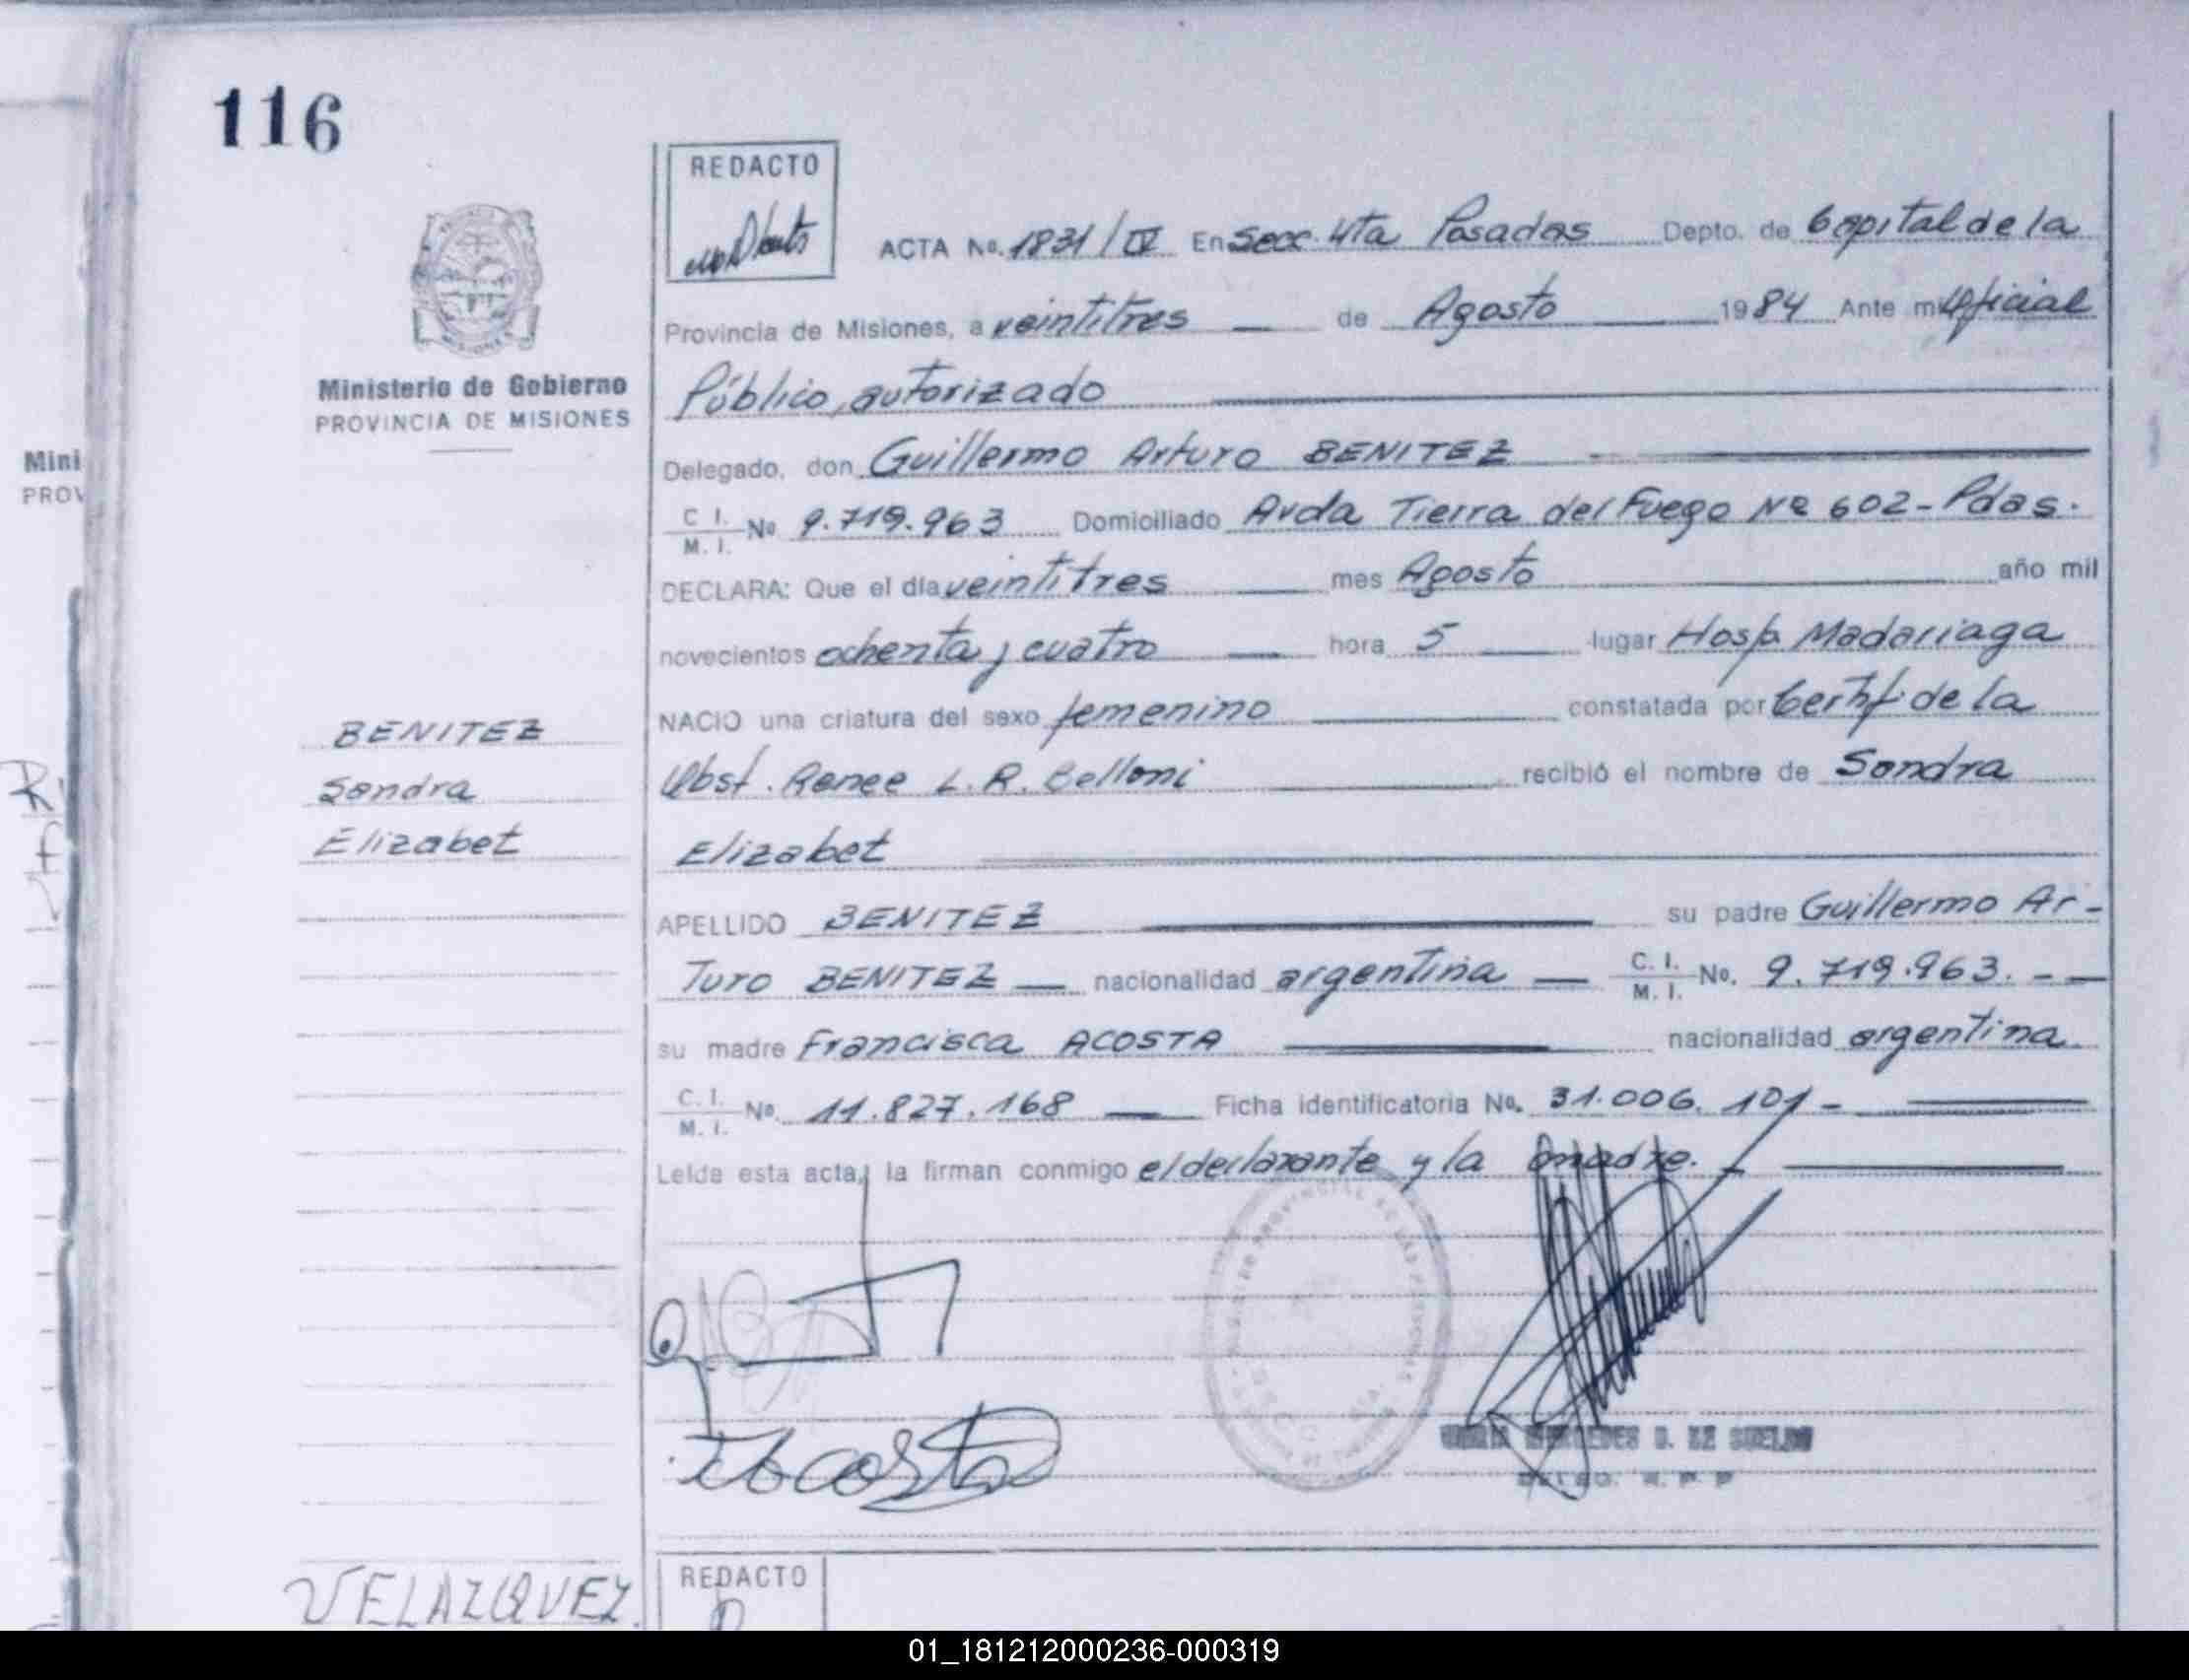 116
REDACTO
ACTA No. 1831/IV En Secc. 4ta Posadas Depto. de Capital de la
Provincia de Misiones, a veintitres de Agosto 1984 Ante mi Oficial
Público, autorizado
Ministerio de Gobierno
PROVINCIA DE MISIONES
Delegado, don Guillermo Arturo BENITEZ
C. I. M. I. No 9.719.963 Domiciliado Avda Tierra del Fuego Nº 602 - Pdas.
DECLARA: Que el día veintitres mes Agosto año mil
novecientos ochenta y cuatro hora 5 lugar Hosp. Madariaga
NACIO una criatura del sexo femenino constatada por Certif. de la
Obst. Renee L. R. Belloni recibió el nombre de Sandra
Elizabet
BENITEZ
Sandra
Elizabet
APELLIDO BENITEZ su padre Guillermo Ar-
turo BENITEZ nacionalidad argentina C. I. M. I. No. 9.719.963.
su madre Francisca ACOSTA nacionalidad argentina
C. I. M. I. No. 11.827.168 Ficha identificatoria No. 31.006.101-
Leida esta acta, la firman conmigo el declarante y la madre.
FAcosta
MERCEDES D. DE
VELAZQUEZ.
REDACTO
Mini
PROV
01_181212000236-000319